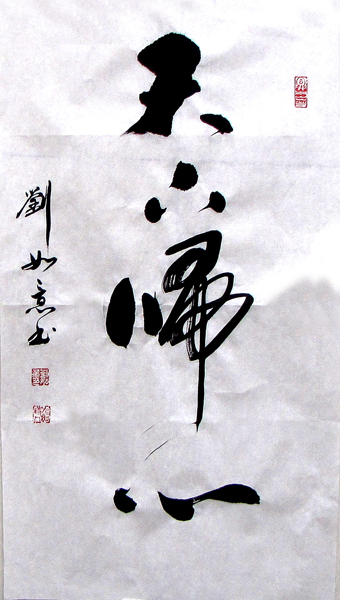 天下歸心
劉如意书